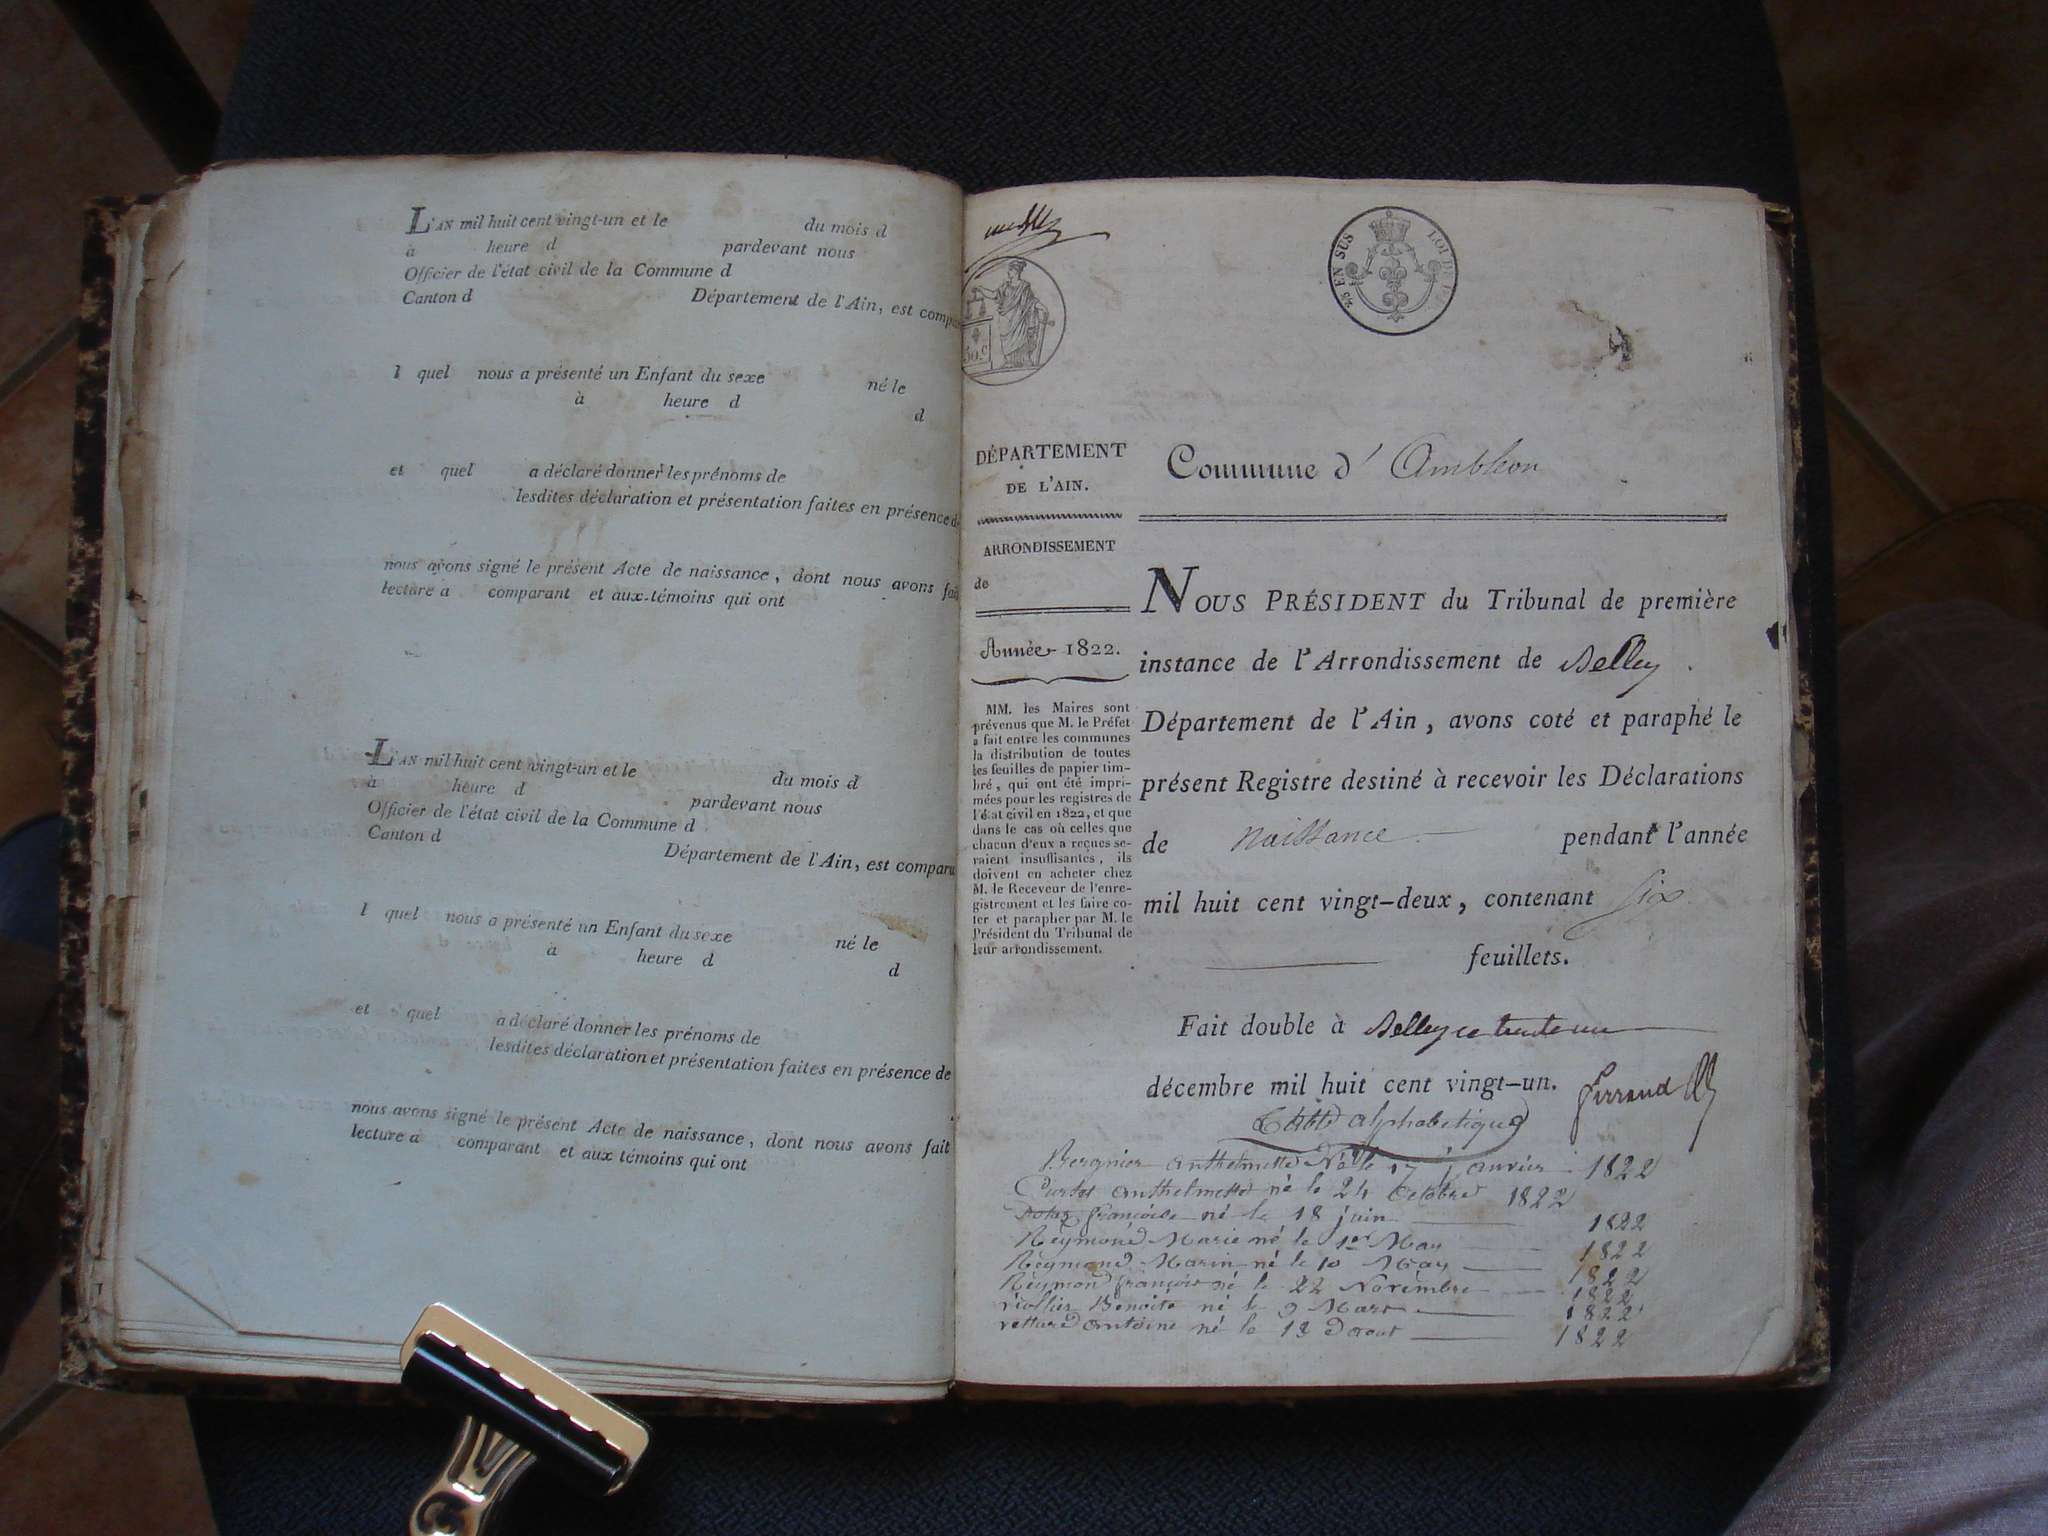 L'AN mil huit cent vingt-un et le du mois d
à heure d pardevant nous
Officier de l'état civil de la Commune d
Canton d Département de l'Ain, est comp
l quel nous a présenté un Enfant du sexe né le
à heure d
d
et quel a déclaré donner les prénoms de
lesdites déclaration et présentation faites en présence d
nous avons signé le présent Acte de naissance, dont nous avons fai
lecture a comparant et aux témoins qui ont
L'AN mil huit cent vingt-un et le du mois d
à heure d pardevant nous
Officier de l'état civil de la Commune d
Canton d Département de l'Ain, est comparu
l quel nous a présenté un Enfant du sexe né le
à heure d
d
et quel a déclaré donner les prénoms de
lesdites déclaration et présentation faites en présence de
nous avons signé le présent Acte de naissance, dont nous avons fait
lecture a comparant et aux témoins qui ont
EN SUS LOI DE
50.C
DÉPARTEMENT
DE L'AIN.
ARRONDISSEMENT
de
Année 1822.
MM. les Maires sont
prévenus que M. le Préfet
a fait entre les communes
la distribution de toutes
les feuilles de papier tim-
bré, qui ont été impri-
mées pour les registres de
l'état civil en 1822, et que
dans le cas où celles que
chacun d'eux a reçues se-
raient insuffisantes, ils
doivent en acheter chez
M. le Receveur de l'enre-
gistrement et les faire co-
ter et parapher par M. le
Président du Tribunal de
leur arrondissement.
Commune d' Ambléon
NOUS PRÉSIDENT du Tribunal de première
instance de l'Arrondissement de Belley
Département de l'Ain, avons coté et paraphé le
présent Registre destiné à recevoir les Déclarations
de naissance pendant l'année
mil huit cent vingt-deux, contenant six
feuillets.
Fait double à Belley ce trente un
décembre mil huit cent vingt-un. Ferrand
Table alphabetique
anthelmette Née le 17 janvier 1822
anthelmette né le 24 Octobre 1822
françoise né le 18 juin 1822
Reymond Marie né le 1er May 1822
Reymond Marin né le 10 May 1822
Reymond françois né le 22 Novembre 1822
Benoite né le 9 Mars 1822
antoine né le d'aout 1822